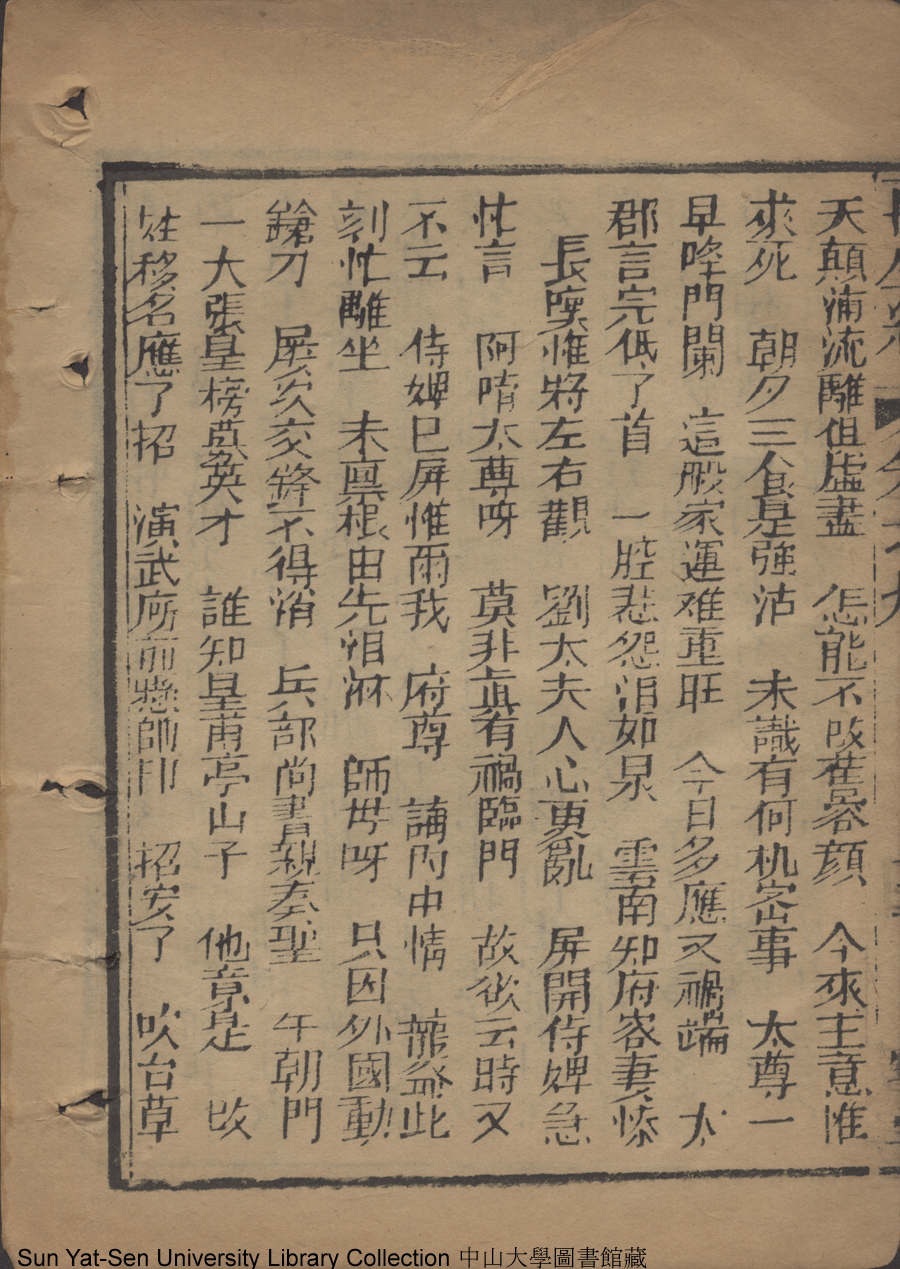 天顛沛流離俱虛盡 怎能不改舊容顔 今來主意惟
求死 朝夕三食是強沾 未識有何机密事 太尊一
早降門闌 這般家運难重旺 今日多應又禍端 太
郡言完低了首 一腔悲怨泪如泉 雲南知府容妻惨
長嘆惟將左右觀 劉太夫人心更亂 屏開侍婢急
忙言 阿唷太尊呀 莫非真有禍臨門 故欲云時又
不云 侍婢已屏惟爾我 府尊 請內中情 龍益此
刻忙離坐 未禀根由先泪淋 師母呀 只因外國動
鎗刀 屡次交鋒不得消 兵部尚書親奏聖 午朝門
一大張皇榜募英才 誰知皇甫亭山子 他竟是 改
姓移名應了招 演武所前懸帥印 招安了 吹台草
Sun Yat-Sen University Library Collection 中山大學圖書館藏